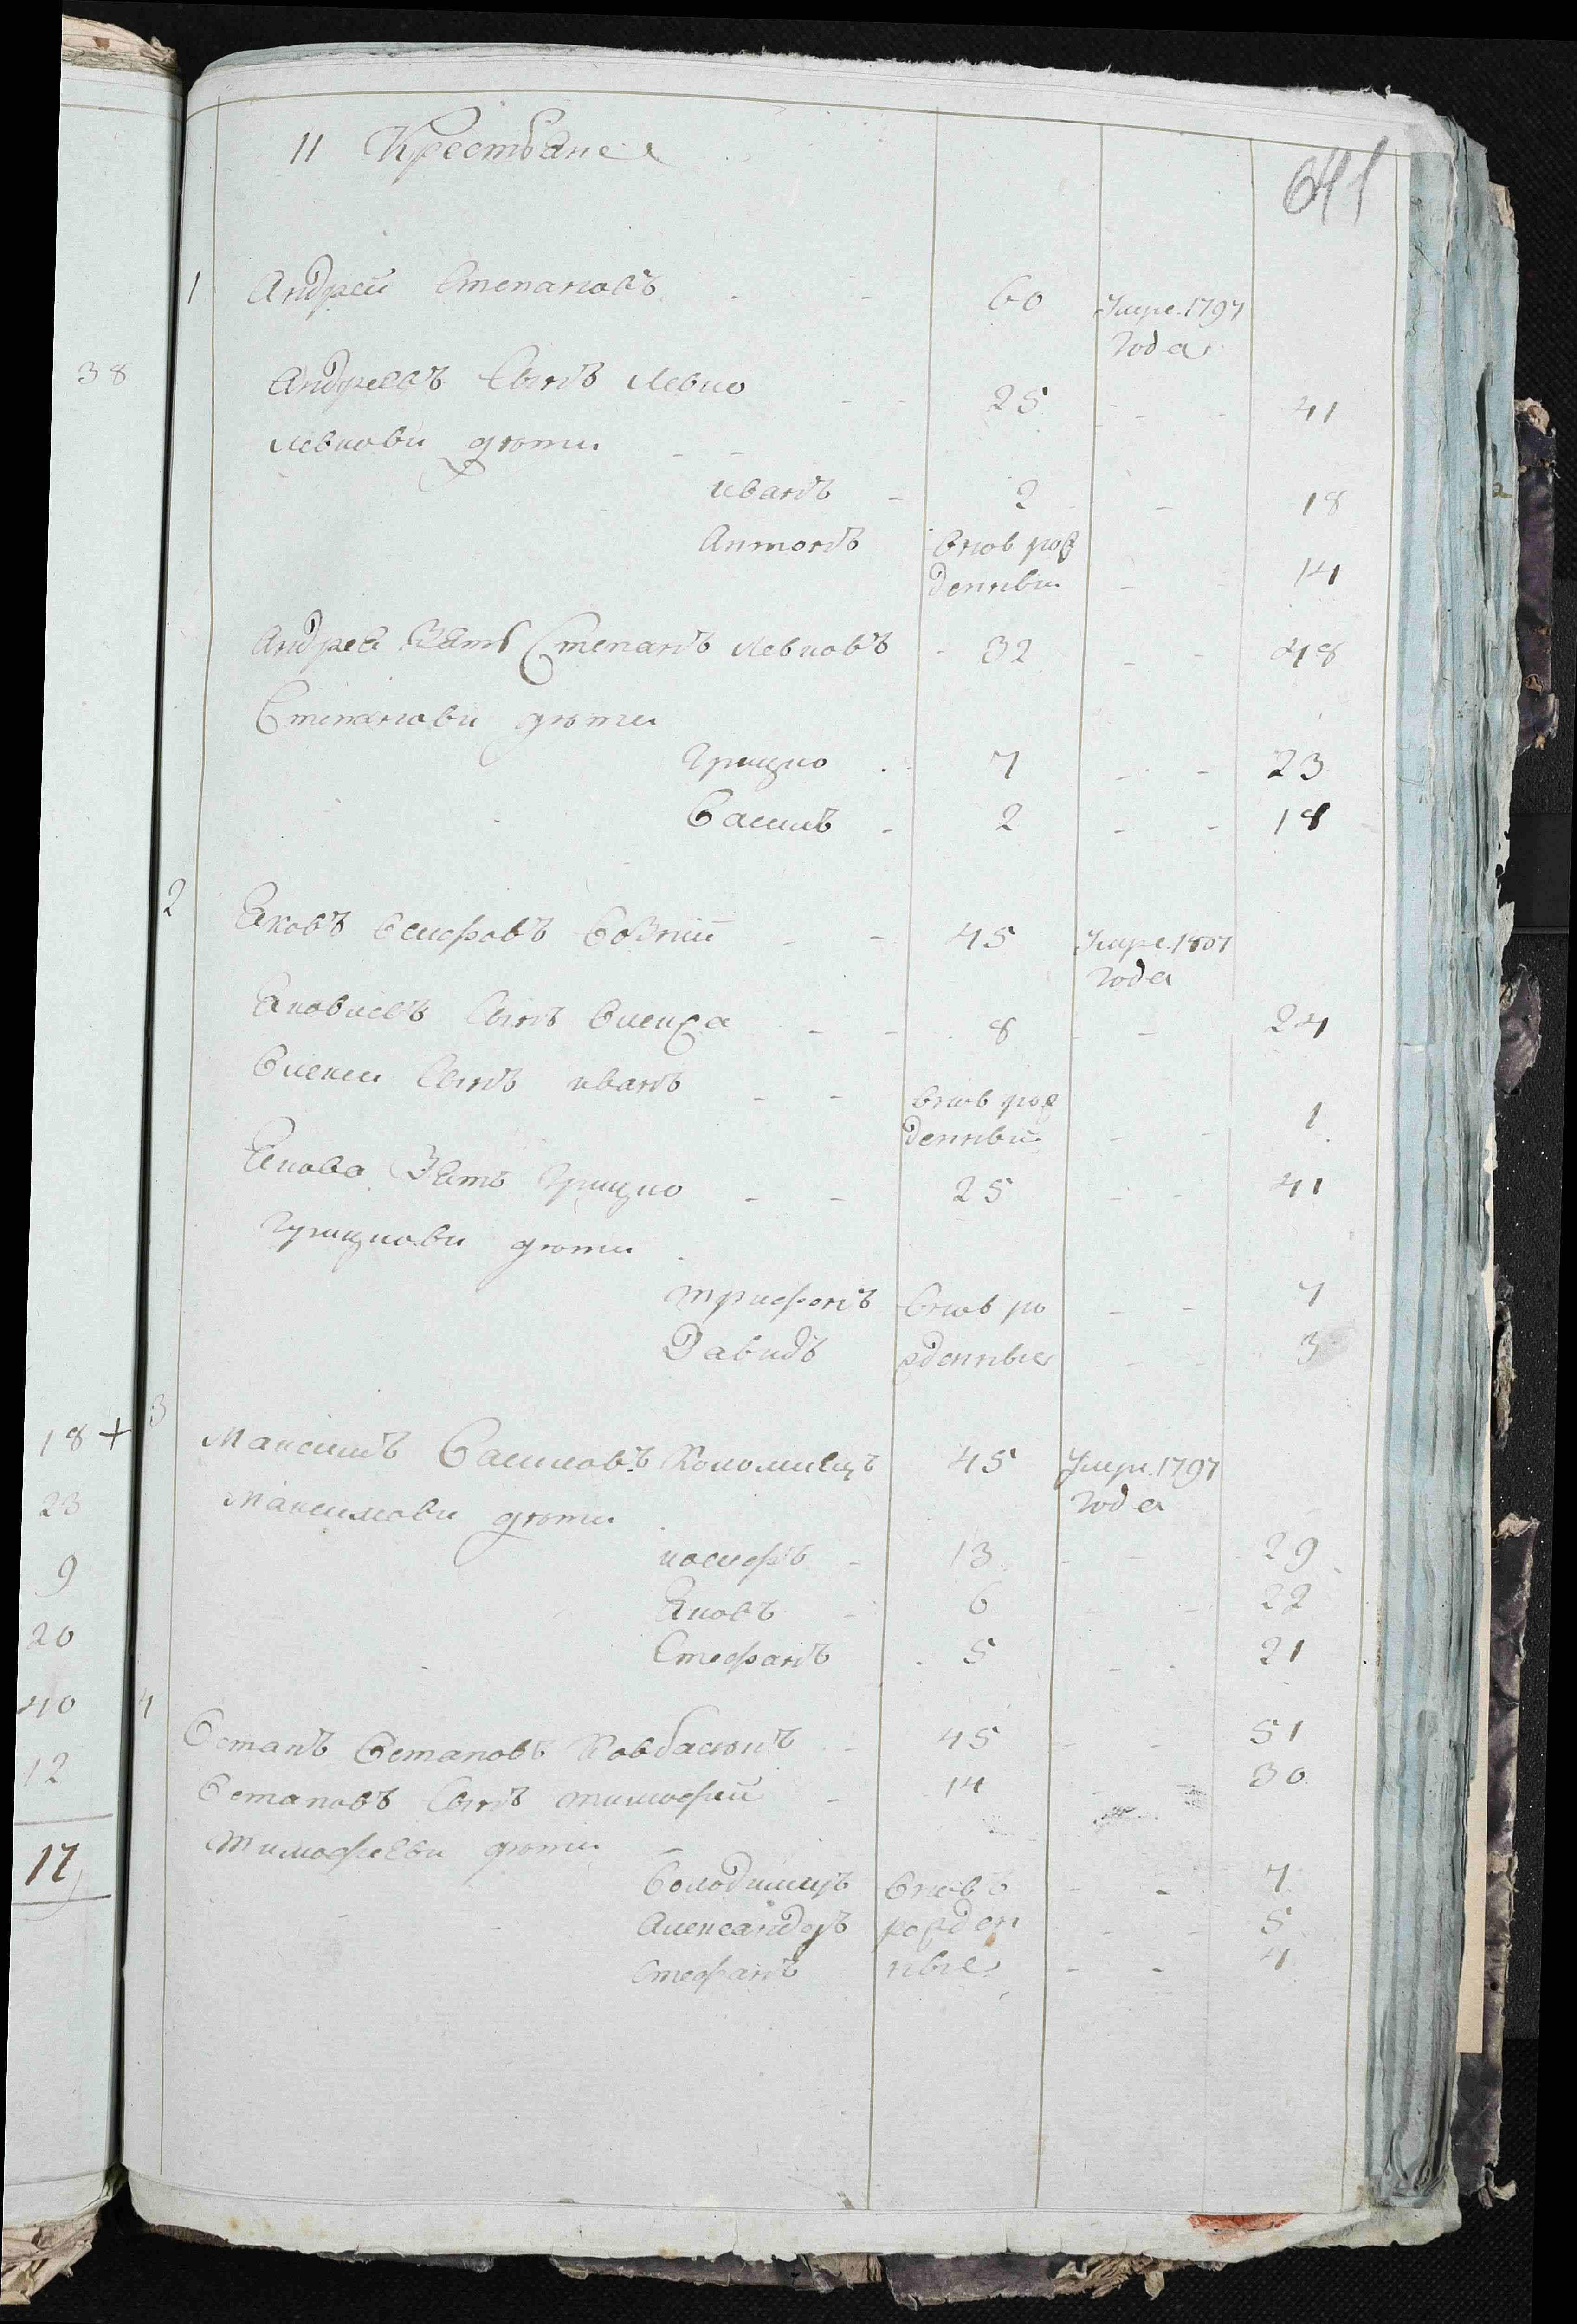 11 Крестьяне
641
1 Андрей Степановъ - - 60 Умре. 1797
года
38
Андреевъ сынъ Левко - - 25 - - 41
Левкови дѣти - -
иванъ - 2 - 18
Антонъ вновь рож
денный - - 14
Андрея Зять Степанъ Левковъ - 32 - - 48
Степанови дѣти
Грицко - 7 - - 23
Василь - 2 - - 18
2 Яковъ Осифовъ Возній - - 45 Умре. 1807
года
Яковлевъ сынъ Олекса - - 8 - - 24
Олекси сынъ иванъ - - вновь рож
денный - - 1
Якова Зять Грицко - - 25 - - 41
Грицкови дѣти
Трифонъ вновь ро - - 7
Давидъ жденные - - 3
3
18 +
Максимъ Василовъ Коломиецъ 45 Умре. 1797
года
23
Максимови дѣти
иосифъ - 13 - - 29
9
Яковъ - 6 - - 22
20
Стефанъ - 5 - - 21
40 4
Остапъ Остаповъ Ковбасюкъ - 45 - - 51
12
Остаповъ сынъ Тимофей - 14 - 30
Тимофеєви дѣти -
17
Володимиръ вновь - - 7
Александръ рожден - - 5
Стефанъ ные - - 4